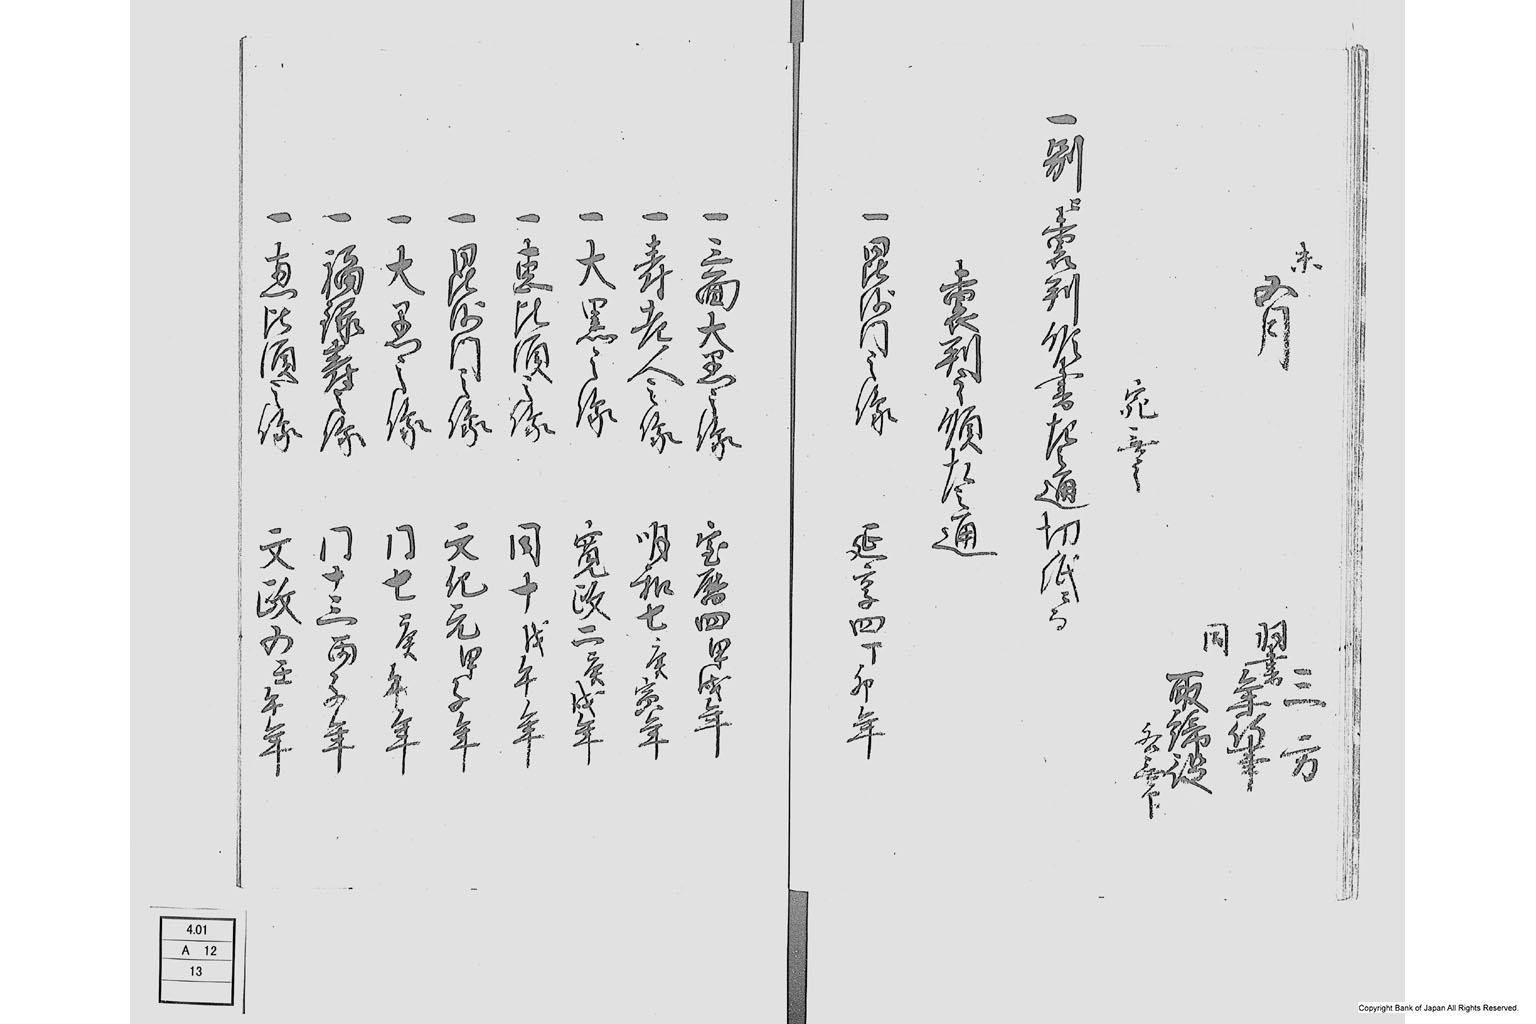 未
五月
三方
羽書
年行事
同
取締役
各無印
宛無之
一別ニ裏判願書左之通切紙ニ而
裏判之願左之通
一毘沙門之像 延享四丁卯年
一三面大黒之像 宝暦四甲戌年
一寿老人之像 明和七庚寅年
一大黒之像 寛政二庚戌年
一恵比須之像 同十戊午年
一毘沙門之像 文化元甲子年
一大黒之像 同七庚午年
一福禄寿之像 同十三丙子年
一恵比須之像 文政五壬午年
4.01
A 12
13
Copyright Bank of Japan All Rights Reserved.